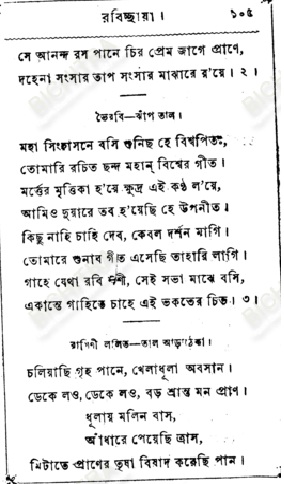 রবিচ্ছায়া। ১০৫
সে আনন্দ রস পানে চির প্রেম জাগে প্রাণে,
দহেনা সংসার তাপ সংসার মাঝারে র'য়ে। ২।
ভৈরবি—ঝাঁপ তাল॥
মহা সিংহাসনে বসি শুনিছ হে বিশ্বপিতঃ,
তোমারি রচিত ছন্দ মহান্ বিশ্বের গীত।
মর্ত্তের মৃত্তিকা হ'য়ে ক্ষুদ্র এই কণ্ঠ ল'য়ে,
আমিও দুয়ারে তব হ'য়েছি হে উপনীত॥
কিছু নাহি চাহি দেব, কেবল দর্শন মাগি।
তোমারে শুনাব গীত এসেছি তাহারি লাগি।
গাহে যেথা রবি শশী, সেই সভা মাঝে বসি,
একান্তে গাহিতে চাহে এই ভকতের চিত। ৩।
রাগিণী ললিত—তাল আড়াঠেকা॥
চলিয়াছি গৃহ পানে, খেলাধূলা অবসান।
ডেকে লও, ডেকে লও, বড় শ্রান্ত মন প্রাণ।
ধূলায় মলিন বাস,
আঁধারে পেয়েছি ত্রাস,
মিটাতে প্রাণের তৃষা বিষাদ করেছি পান॥